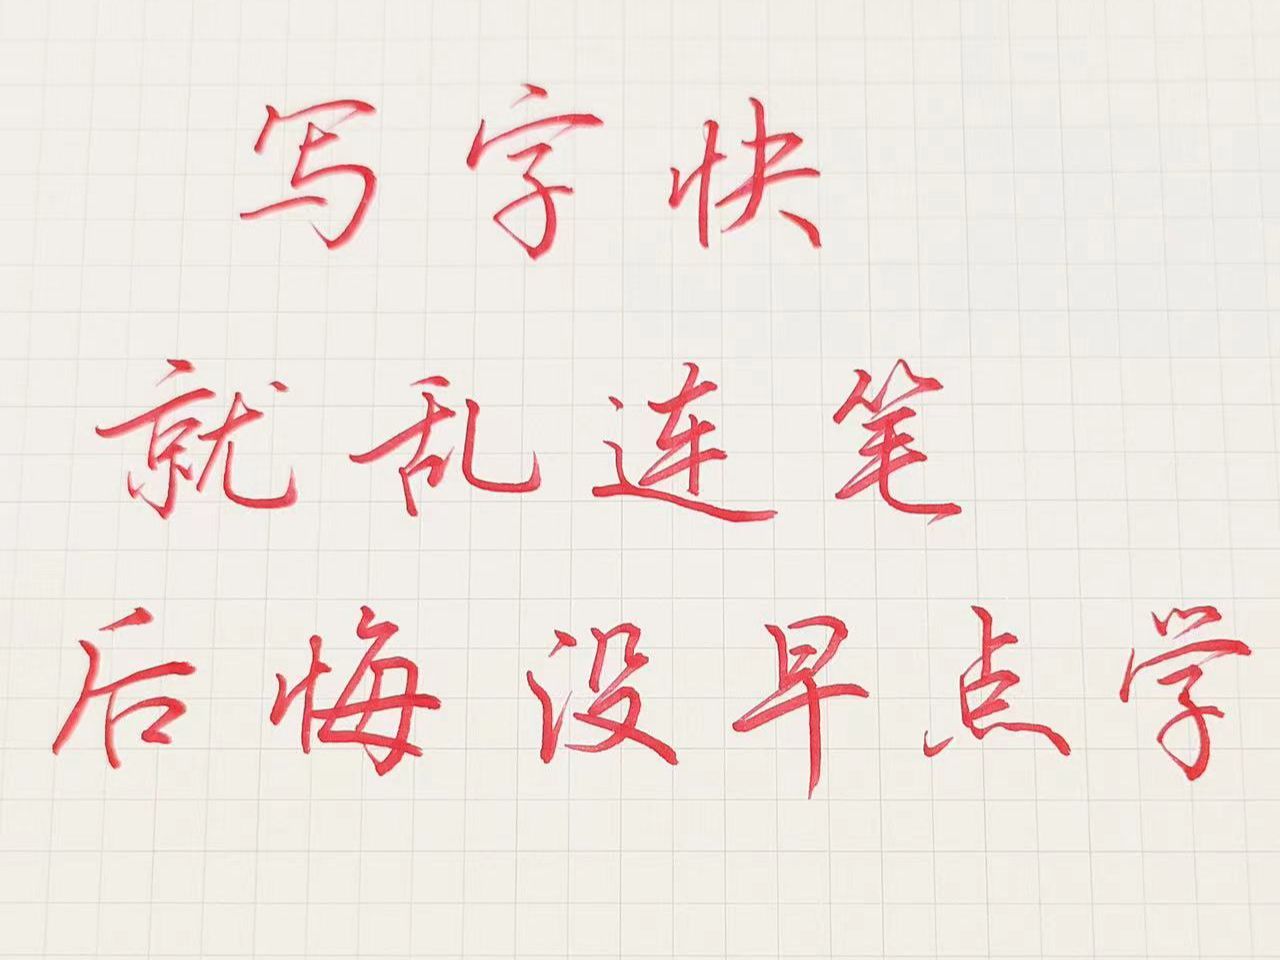 写字快
就乱连笔
后悔没早点学